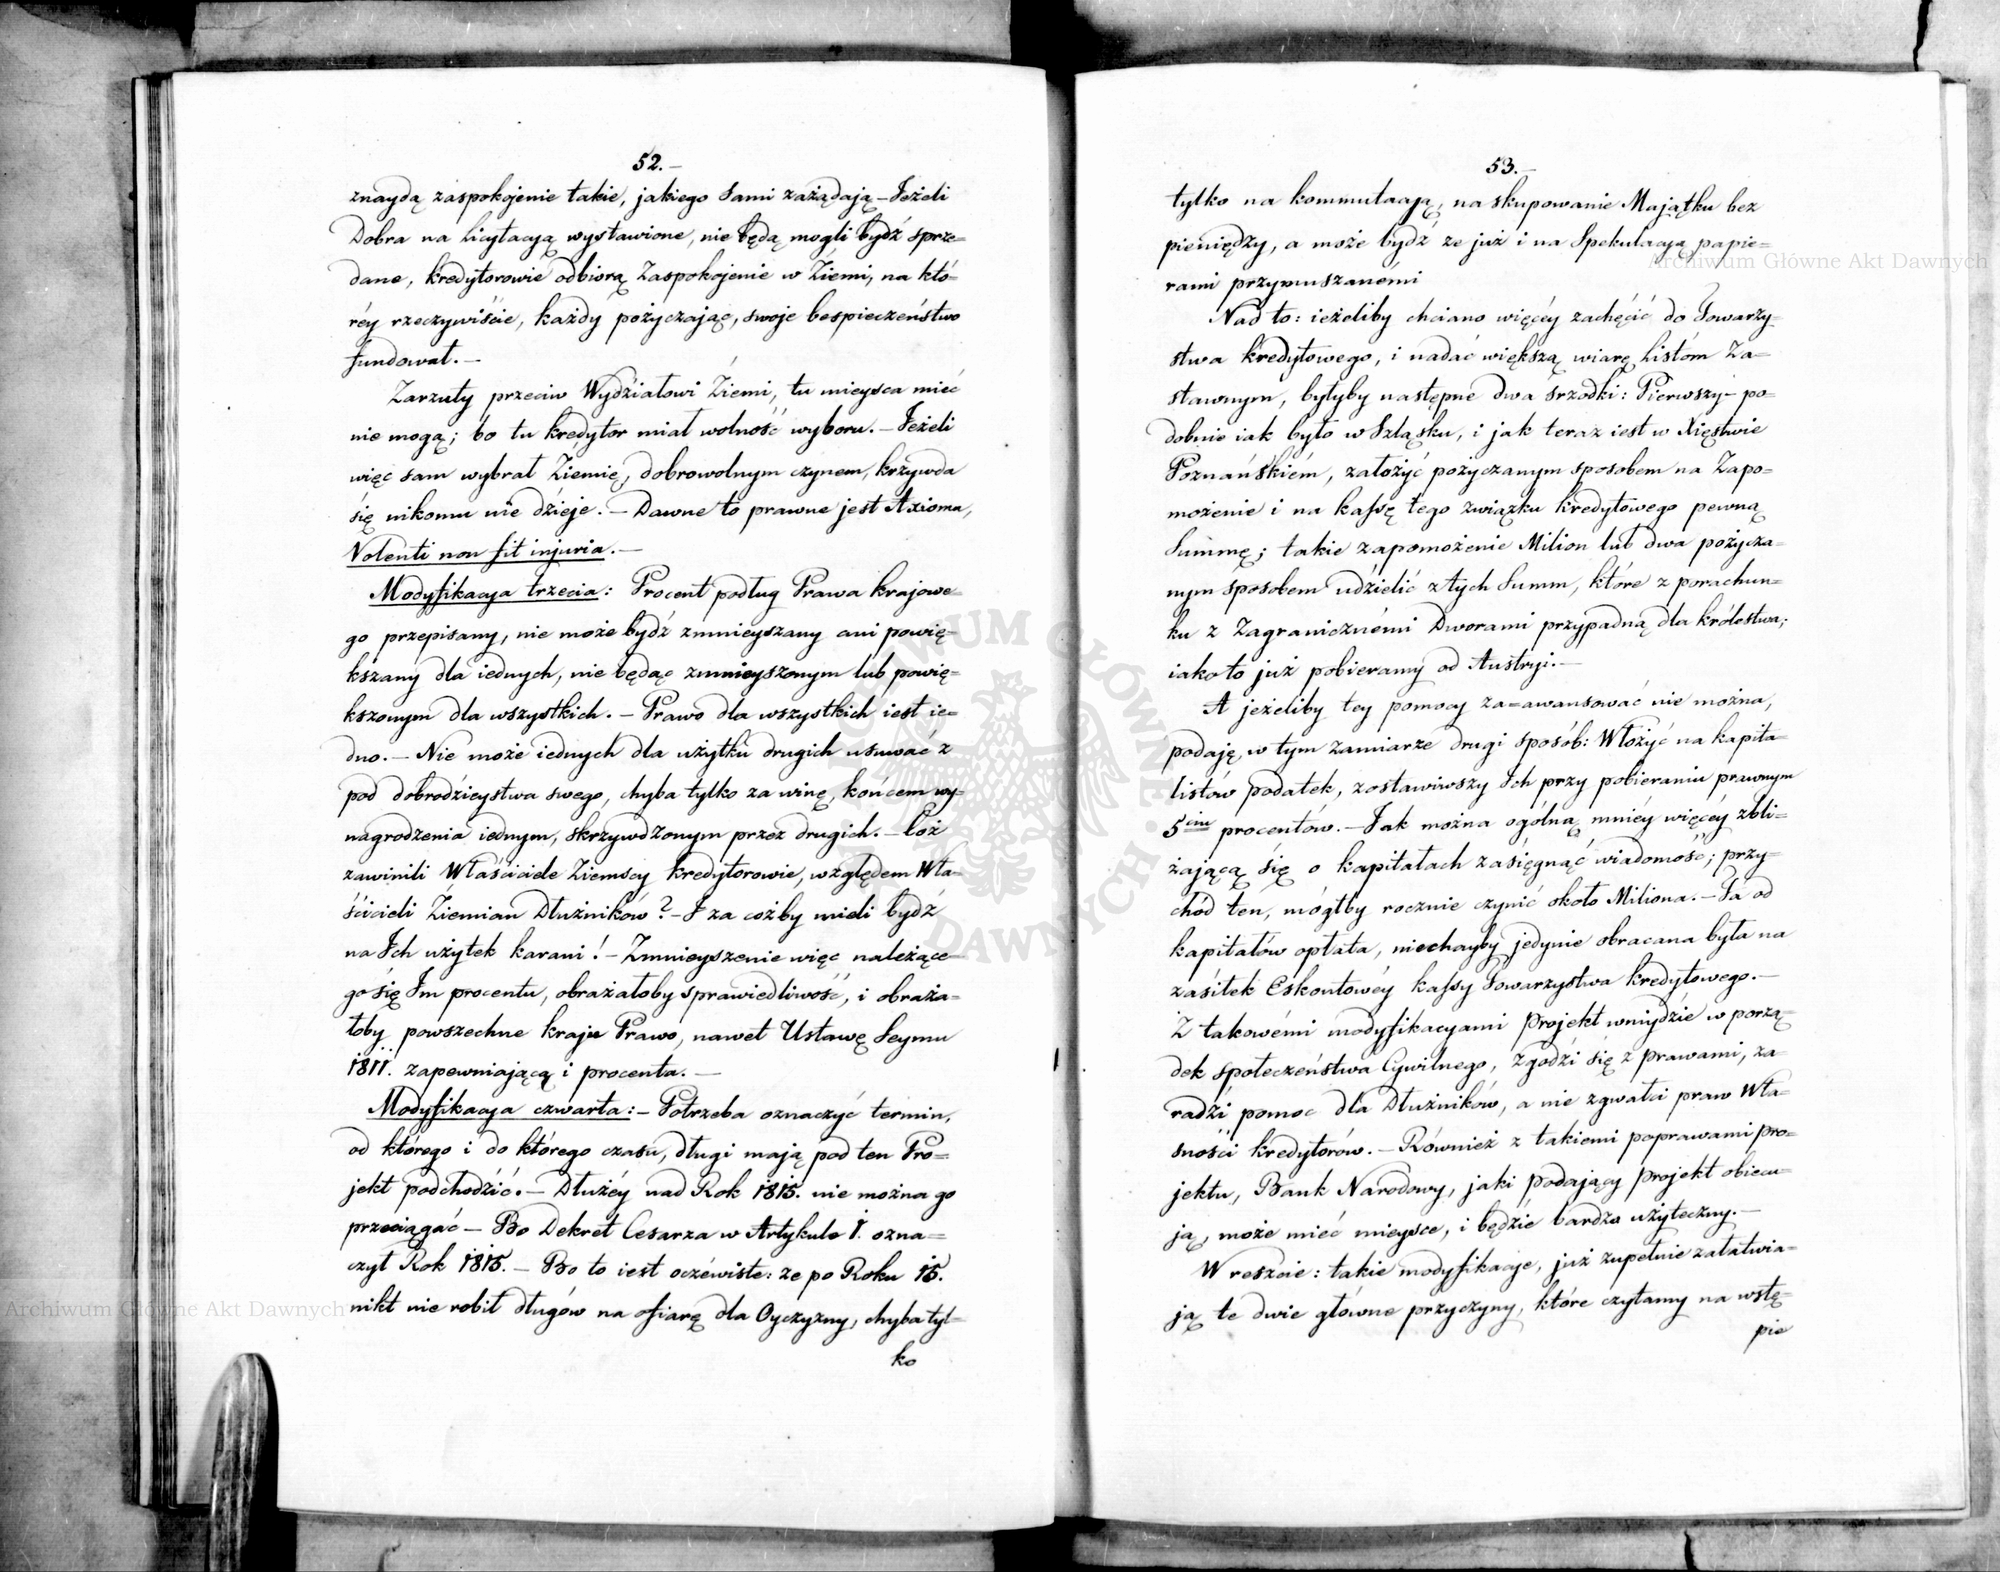 52.–
znaydą zaspokojenie takie, jakiego sami zażądają – Jeżeli
Dobra na Licytacyą wystawione, nie będą mogli bydź sprze=
dane, kredytorowie odbiorą Zaspokojenie w Ziemi, na któ=
réy rzeczywiście, każdy pożyczając, swoje bespieczeństwo
fundował. –
Zarzuty przeciw Wydziałowi Ziemi, tu mieysca mieć
nie mogą; bo tu kredytor miał wolność wyboru. – Jeżeli
więc sam wybrał Ziemię, dobrowolnym czynem, krzywda
się nikomu nie dzieje. – Dawne to prawne jest Axioma,
Volenti non fit injuria. –
Modyfikacya trzecia: Procent podług Prawa krajowe=
go przepisany, nie może bydź zmnieyszany ani powię=
kszany dla iednych, nie będąc zmnieyszonym lub powię=
kszonym dla wszystkich. – Prawo dla wszystkich iest ie=
dno. – Nie może iednych dla użytku drugich usuwać z
pod dobrodzieystwa swego, chyba tylko za winę, końcem wy=
nagrodzenia iednym, skrzywdzonym przez drugich. – Cóż
zawinili Właściciele Ziemscy kredytorowie, względem Wła=
ścicieli Ziemian Dłużników? – I za cożby mieli bydź
na Ich użytek karani! – Zmnieyszenie więc należące=
go się Im procentu, obrażałoby sprawiedliwość, i obraża=
łoby powszechne kraju Prawo, nawet Ustawę Seymu
1811. zapewniającą i procenta. –
Modyfikacya czwarta: – Potrzeba oznaczyć termin,
od którego i do którego czasu, długi mają pod ten Pro=
jekt podchodzić. – Dłużéy nad Rok 1815. nie można go
przeciągać – Bo Dekret Cesarza w Artykule 1. ozna=
czył Rok 1815. – Bo to iest oczéwiste: że po Roku 15.
nikt nie robił długów na ofiarę dla Oyczyzny, chyba tyl=
ko
53.–
tylko na kommutacyą, na skupowanie Majątku bez
pieniędzy, a może bydź że już i na Spekulacyą papie=
rami przymuszanémi
Nad to: ieżeliby chciano więcéy zachęcić do Towarzy=
stwa kredytowego, i nadać większą wiarę Listóm Za=
stawnym, byłyby następne dwa śrzodki: Pierwszy – po=
dobnie iak było w Szląsku, i jak teraz iest w Xięstwie
Poznańskiém, założyć pożyczanym sposobem na Zapo=
możenie i na kassę tego związku kredytowego pewną
Summę; takie zapomożenie Milion lub dwa pożycza=
nym sposobem udzielić z tych Summ, które z porachun=
ku z Zagranicznémi Dworami przypadną dla królestwa;
iako to już pobieramy od Austryi. –
A jeżeliby tey pomocy za=awansować nie można,
podaję w tym zamiarze drugi sposób: Włożyć na kapita=
listów podatek, zostawiwszy Ich przy pobieraniu prawnym
5ciu procentów. – Jak można ogólną mniéy więcéy zbli=
żającą się o kapitałach zasięgnąć wiadomość; przy=
chód ten, mógłby rocznie czynić około Miliona. – Ta od
kapitałów opłata, niechayby jedynie obracana była na
zasiłek Eskontowéy kassy Towarzystwa kredytowego. –
Z takowémi modyfikacyami Projekt wniydzie w porzą=
dek społeczeństwa Cywilnego, zgodzi się z prawami, za=
radzi pomoc dla Dłużników, a nie zgwałci praw Wła=
sności kredytorów. – Również z takiemi poprawami pro=
jektu, Bank Narodowy, jaki podający projekt obiecu=
ją, może mieć mieysce, i będzie bardzo użyteczny. –
W reszcie: takie modyfikacye, już zupełnie załatwia=
ją te dwie główne przyczyny, które czytamy na wstę=
pie
Archiwum Główne Akt Dawnych
Archiwum Główne Akt Dawnych
ARCHIWUM GŁÓWNE AKT DAWNYCH